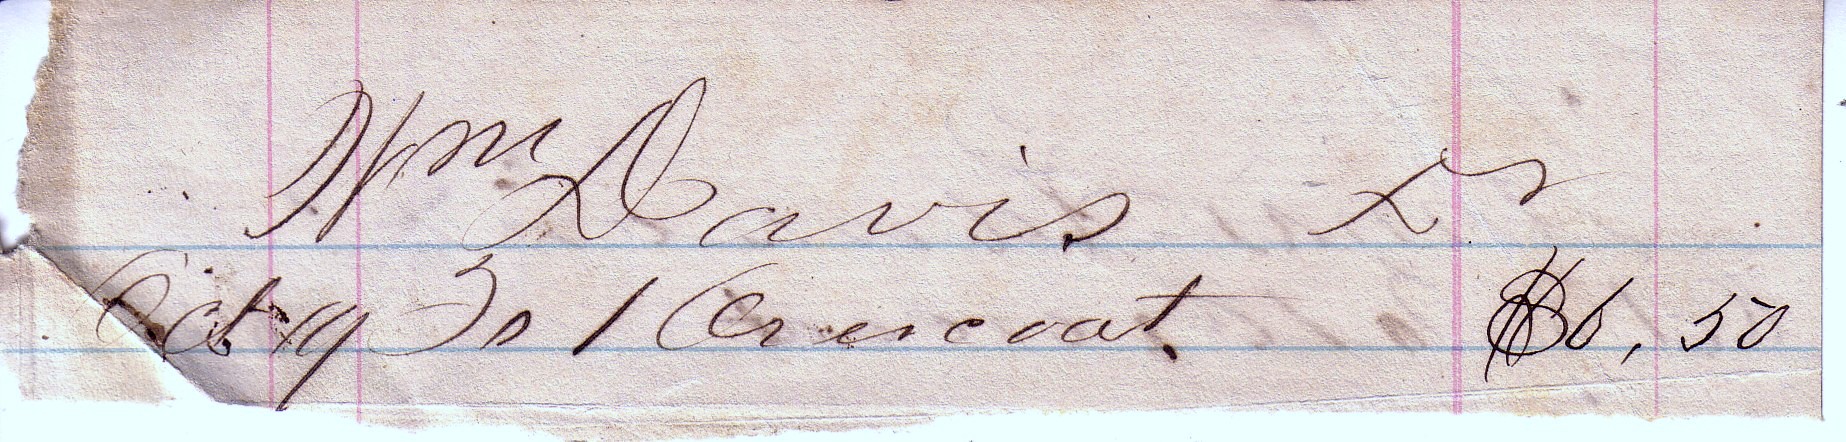 Wm Davis Dr
Oct 19 To 1 Overcoat. $6,50